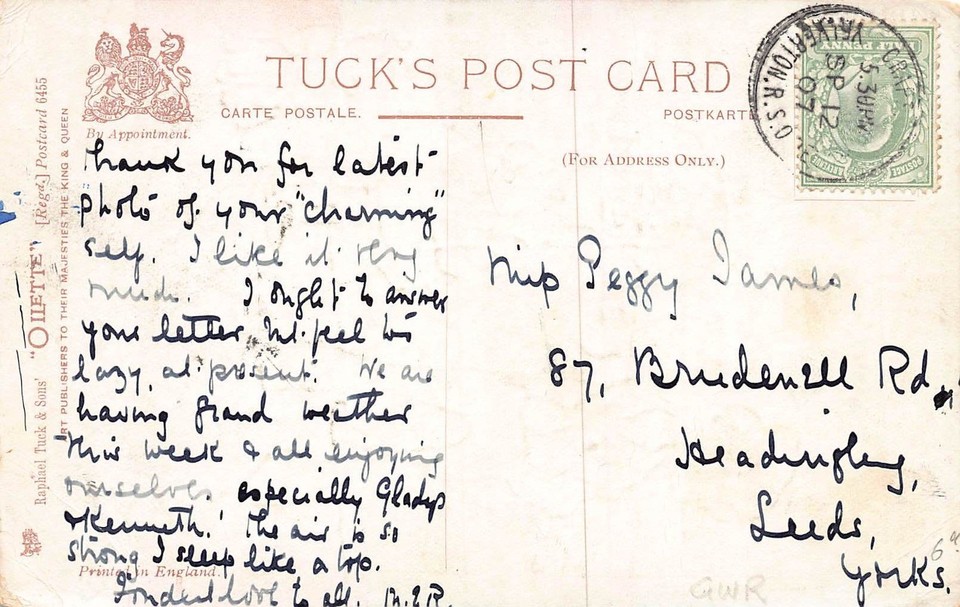 TUCK'S POST CARD
CARTE POSTALE.
POSTKARTE
By Appointment.
(FOR ADDRESS ONLY.)
Raphael Tuck & Sons' "OILETTE" [Regd.] Postcard 6455
ART PUBLISHERS TO THEIR MAJESTIES THE KING & QUEEN
HALF PENNY
YELVERTON.R.S.O.
5.30PM
SP 12
07
Thank you for latest
photo of your "charming"
self. I like it very
much. I ought to answer
your letter, but feel too
lazy, at present. We are
having grand weather
this week & all enjoying
ourselves, especially Gladys
& Kenneth. The air is so
strong I sleep like a top.
Printed in England.
Fondest love to all.
Miss Peggy James,
87, Brudenell Rd.,
Headingley,
Leeds,
Yorks.
GWR